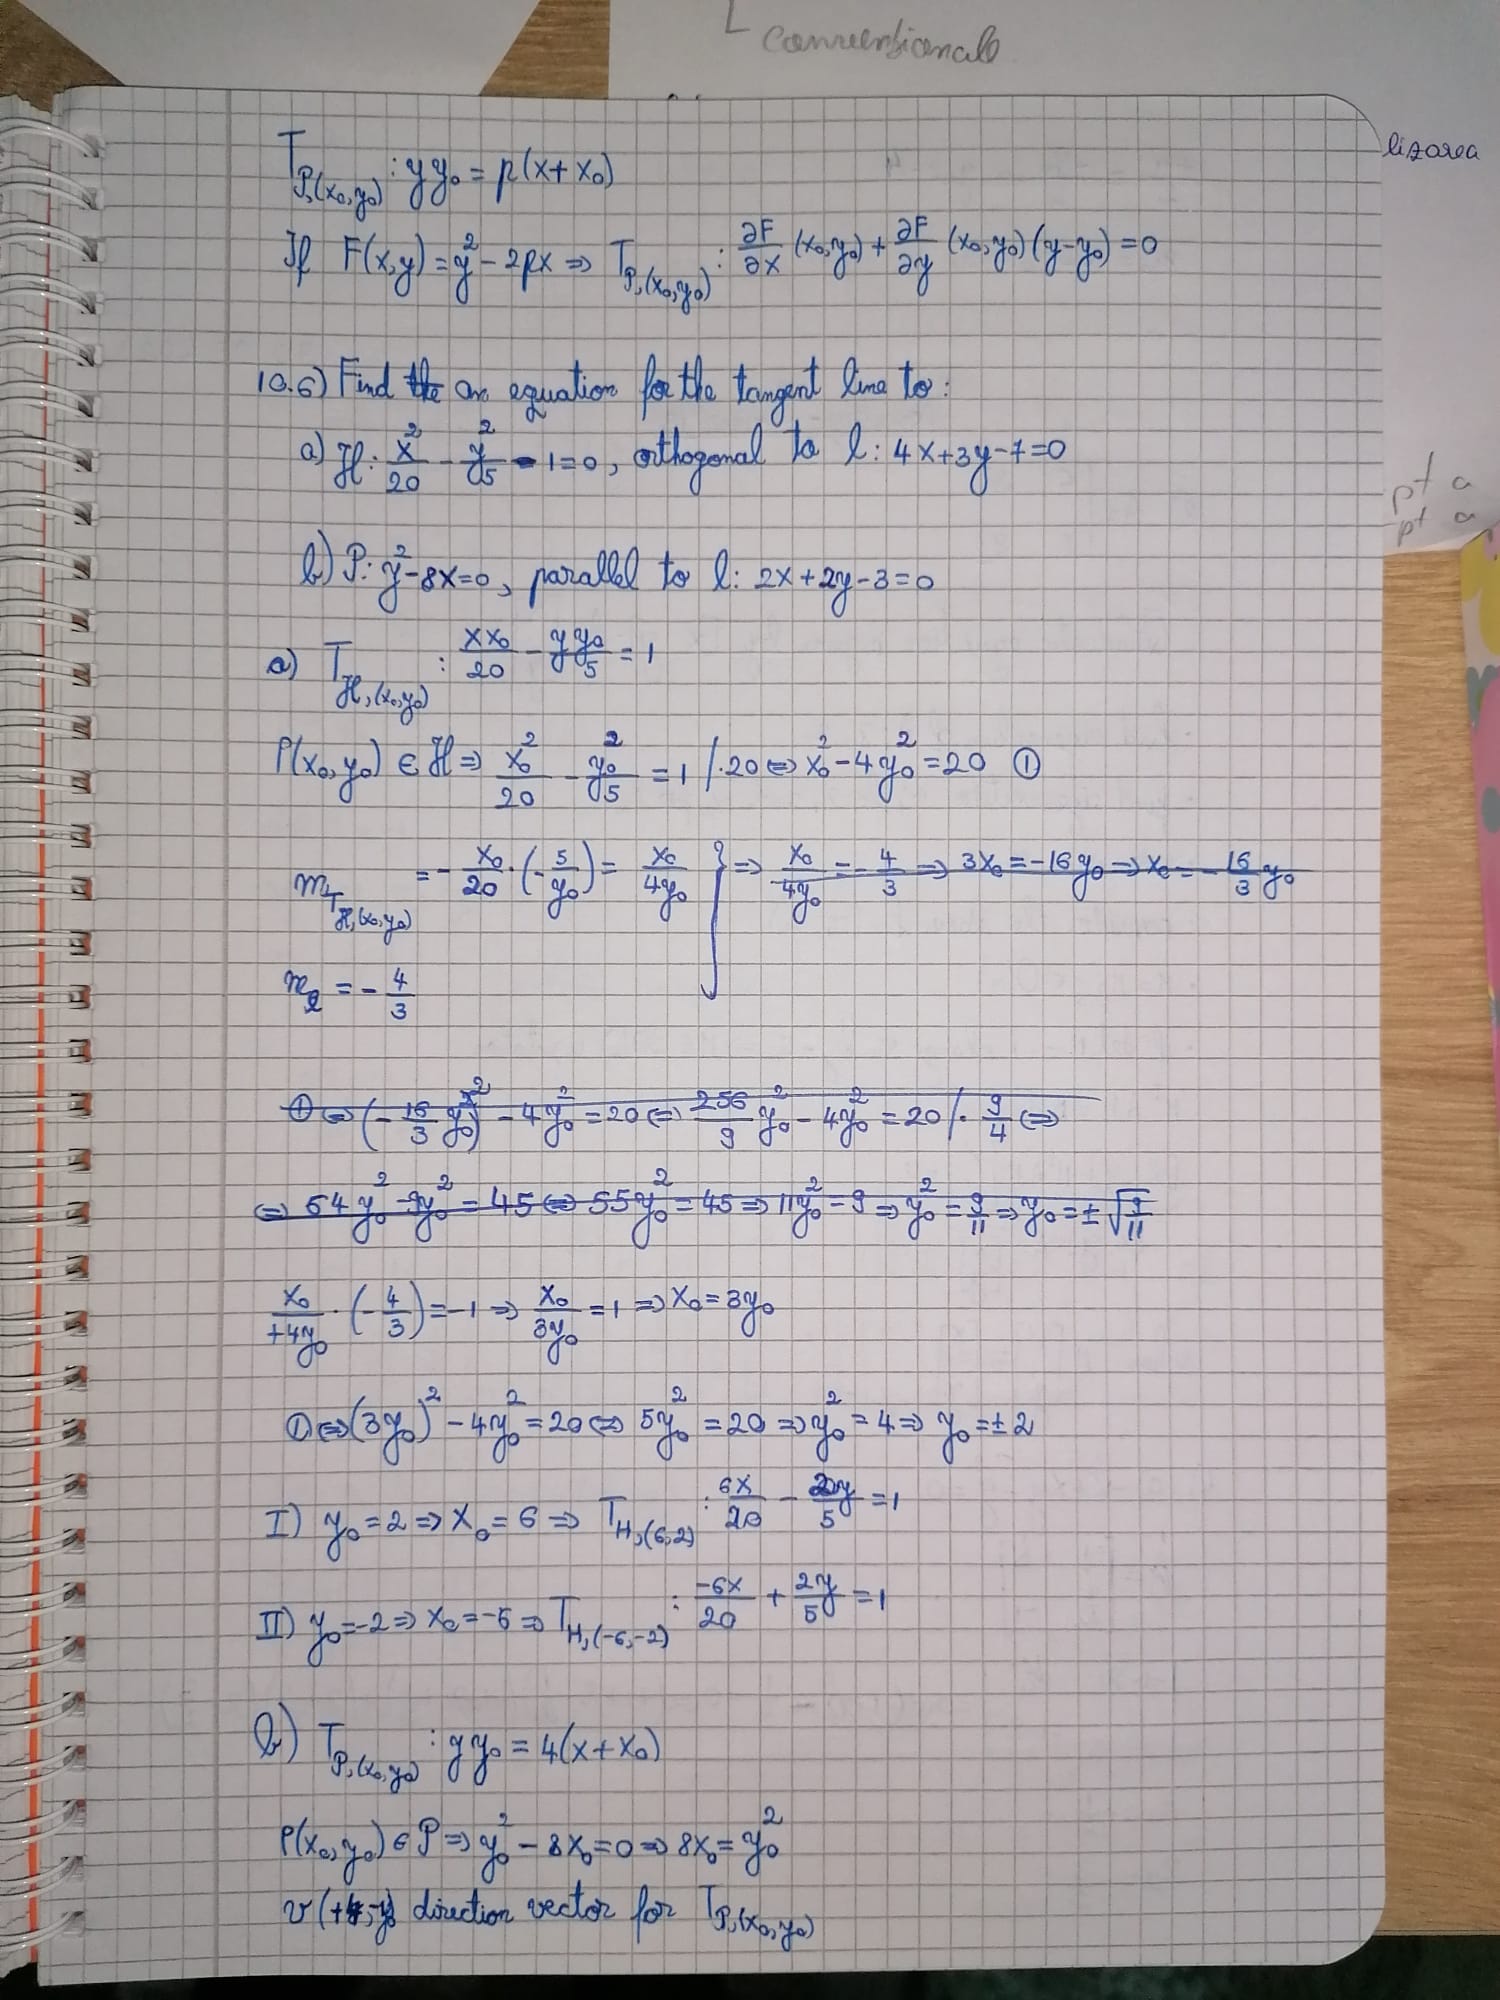 conventionale
lizarea
T_{P,(x₀,y₀)} : yy₀ = p(x+x₀)
If F(x,y) = y² - 2px ⇒ T_{P,(x₀,y₀)} : ∂F/∂x (x₀,y₀) + ∂F/∂y (x₀,y₀)(y-y₀) = 0
10.6) Find the an equation for the tangent line to:
a) H: x²/20 - y²/5 - 1 = 0, orthogonal to l: 4x+3y-7=0
pt a
pt a
b) P: y²-8x=0, parallel to l: 2x+2y-3=0
a) T_{H,(x₀,y₀)} : xx₀/20 - yy₀/5 = 1
P(x₀,y₀) ∈ H ⇒ x₀²/20 - y₀²/5 = 1 /·20 ⇔ x₀² - 4y₀² = 20 ①
m_{T_{H,(x₀,y₀)}} = -x₀/20 · (-5/y₀) = x₀/4y₀ } ⇒ x₀/4y₀ = -4/3 ⇒ 3x₀ = -16y₀ ⇒ x₀ = -16/3 y₀
m_l = -4/3
① ⇔ (-16/3 y₀)² - 4y₀² = 20 ⇔ 256/9 y₀² - 4y₀² = 20 /· 9/4 ⇔
⇔ 64y₀² - 9y₀² = 45 ⇔ 55y₀² = 45 ⇒ 11y₀² = 9 ⇒ y₀² = 9/11 ⇒ y₀ = ±√(9/11)
x₀/+4y₀ · (-4/3) = -1 ⇒ x₀/3y₀ = 1 ⇒ x₀ = 3y₀
① ⇔ (3y₀)² - 4y₀² = 20 ⇔ 5y₀² = 20 ⇒ y₀² = 4 ⇒ y₀ = ±2
I) y₀ = 2 ⇒ x₀ = 6 ⇒ T_{H,(6,2)} : 6x/20 - 2y/5 = 1
II) y₀ = -2 ⇒ x₀ = -6 ⇒ T_{H,(-6,-2)} : -6x/20 + 2y/5 = 1
b) T_{P,(x₀,y₀)} : yy₀ = 4(x+x₀)
P(x₀,y₀) ∈ P ⇒ y₀² - 8x₀ = 0 ⇒ 8x₀ = y₀²
direction vector for T_{P,(x₀,y₀)}